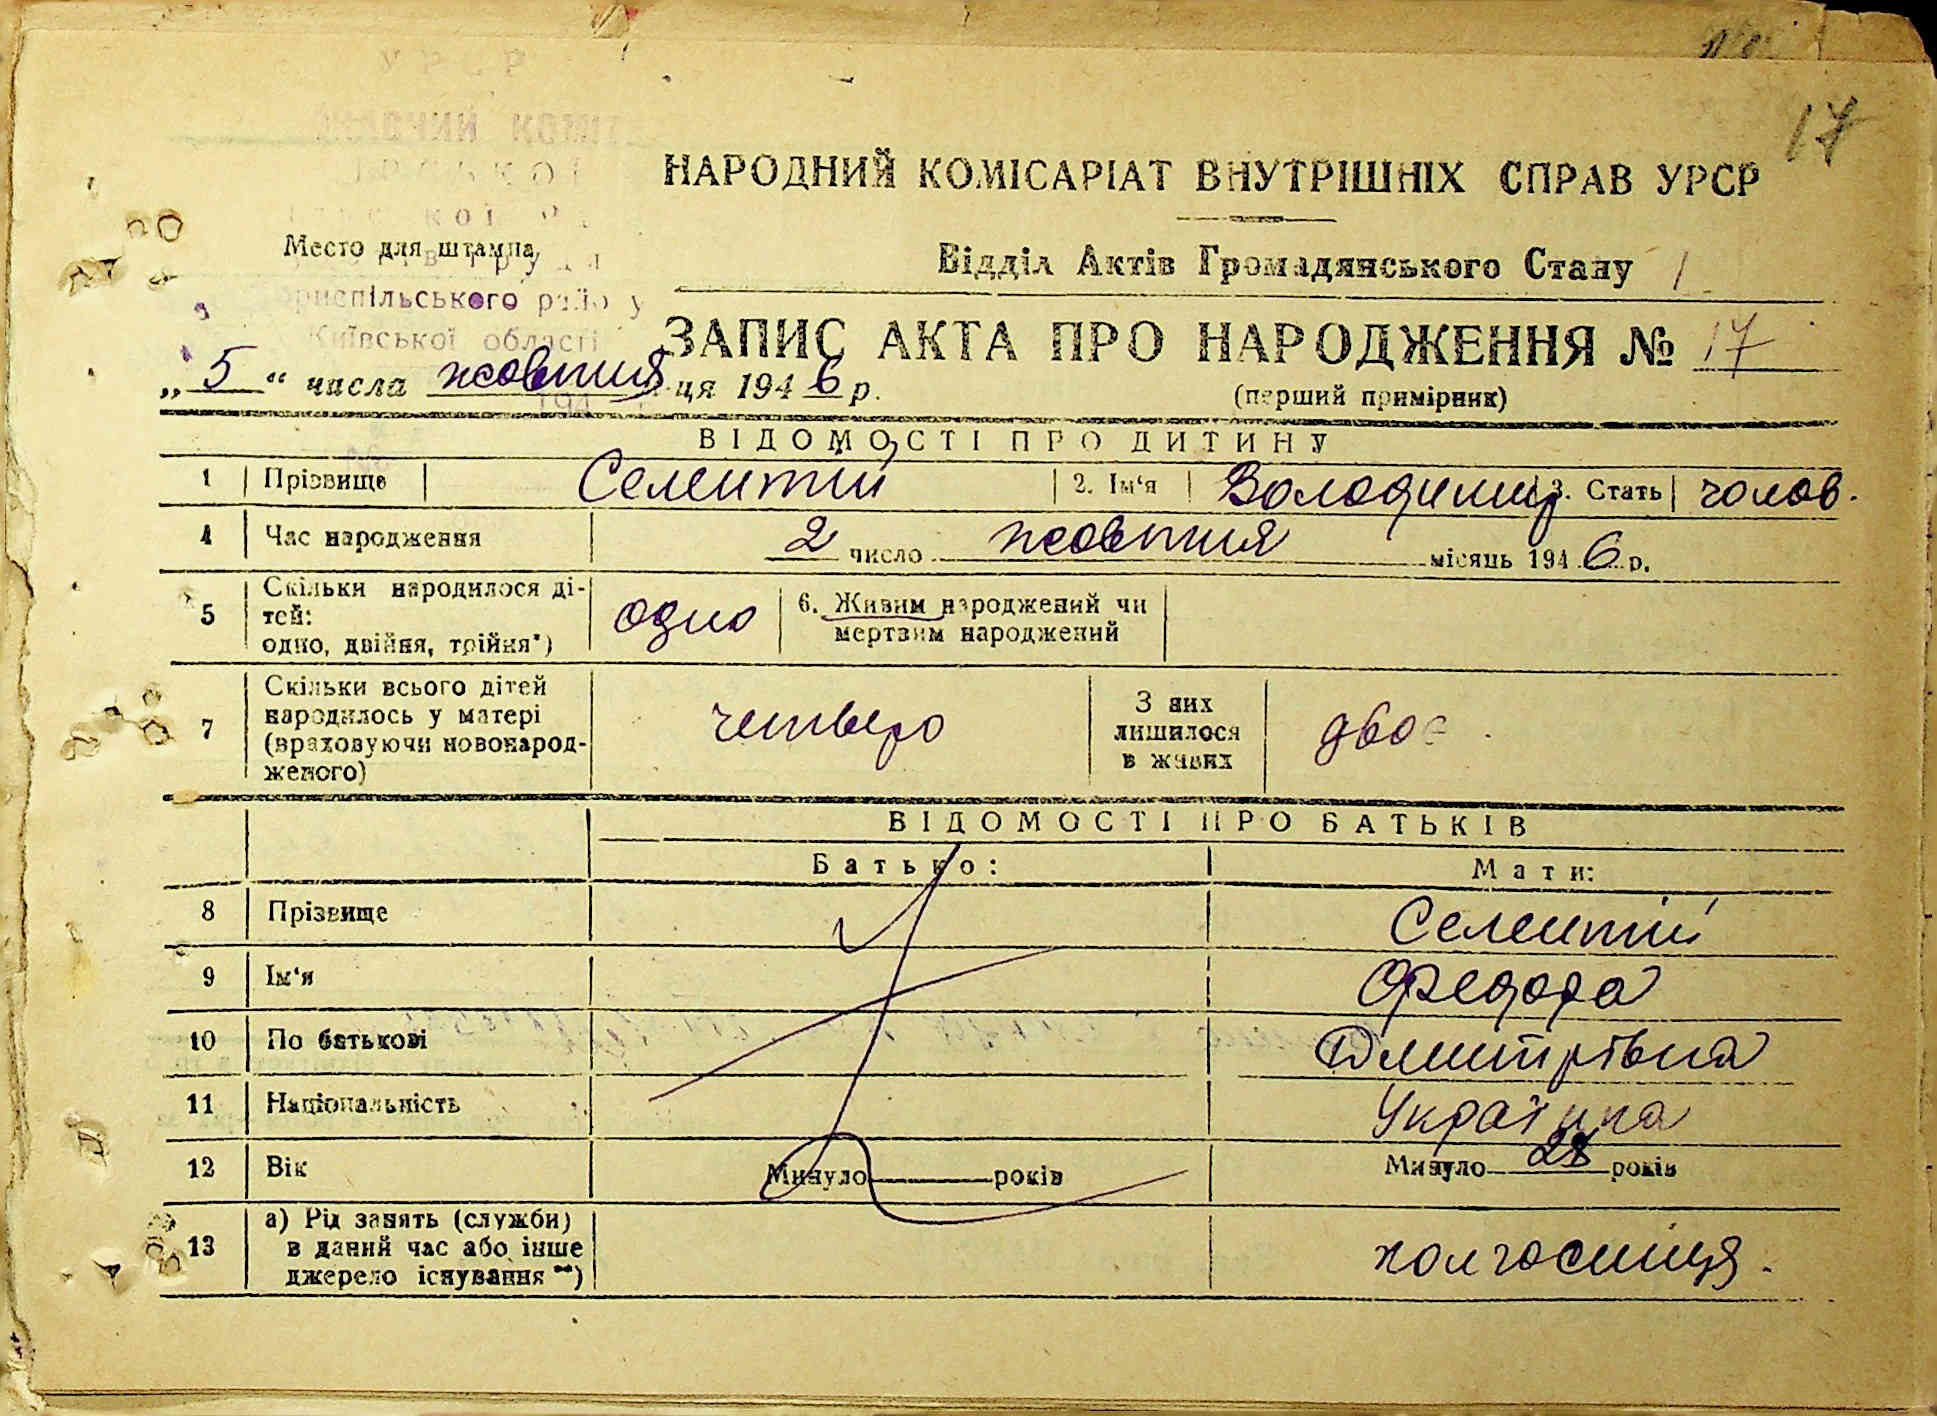 17
НАРОДНИЙ КОМІСАРІАТ ВНУТРІШНІХ СПРАВ УРСР
Место для штампа
Відділ Актів Громадянського Стану
Бориспільського району
Київської області
ЗАПИС АКТА ПРО НАРОДЖЕННЯ № 17
„5“ числа жовтня ця 1946 р.
(перший примірник)
ВІДОМОСТІ ПРО ДИТИНУ
1 Прізвище Селентій 2. Ім‘я Володимир 3. Стать чолов.
4 Час народження 2 число жовтня місяць 1946 р.
5 Скільки народилося ді-
тей:
одно, двійня, трійня*)
одно
6. Живим народжений чи
мертвим народжений
7 Скільки всього дітей
народилось у матері
(враховуючи новонарод-
женого)
четверо
З них
лишилося
в живих
двоє
ВІДОМОСТІ ПРО БАТЬКІВ
Батько: Мати:
8 Прізвище Селентій
9 Ім‘я Федора
10 По батькові Дмитрівна
11 Національність Українка
12 Вік Минуло років Минуло 28 років
13 а) Рід занять (служби)
в даний час або інше
джерело існування**)
колгоспниця.